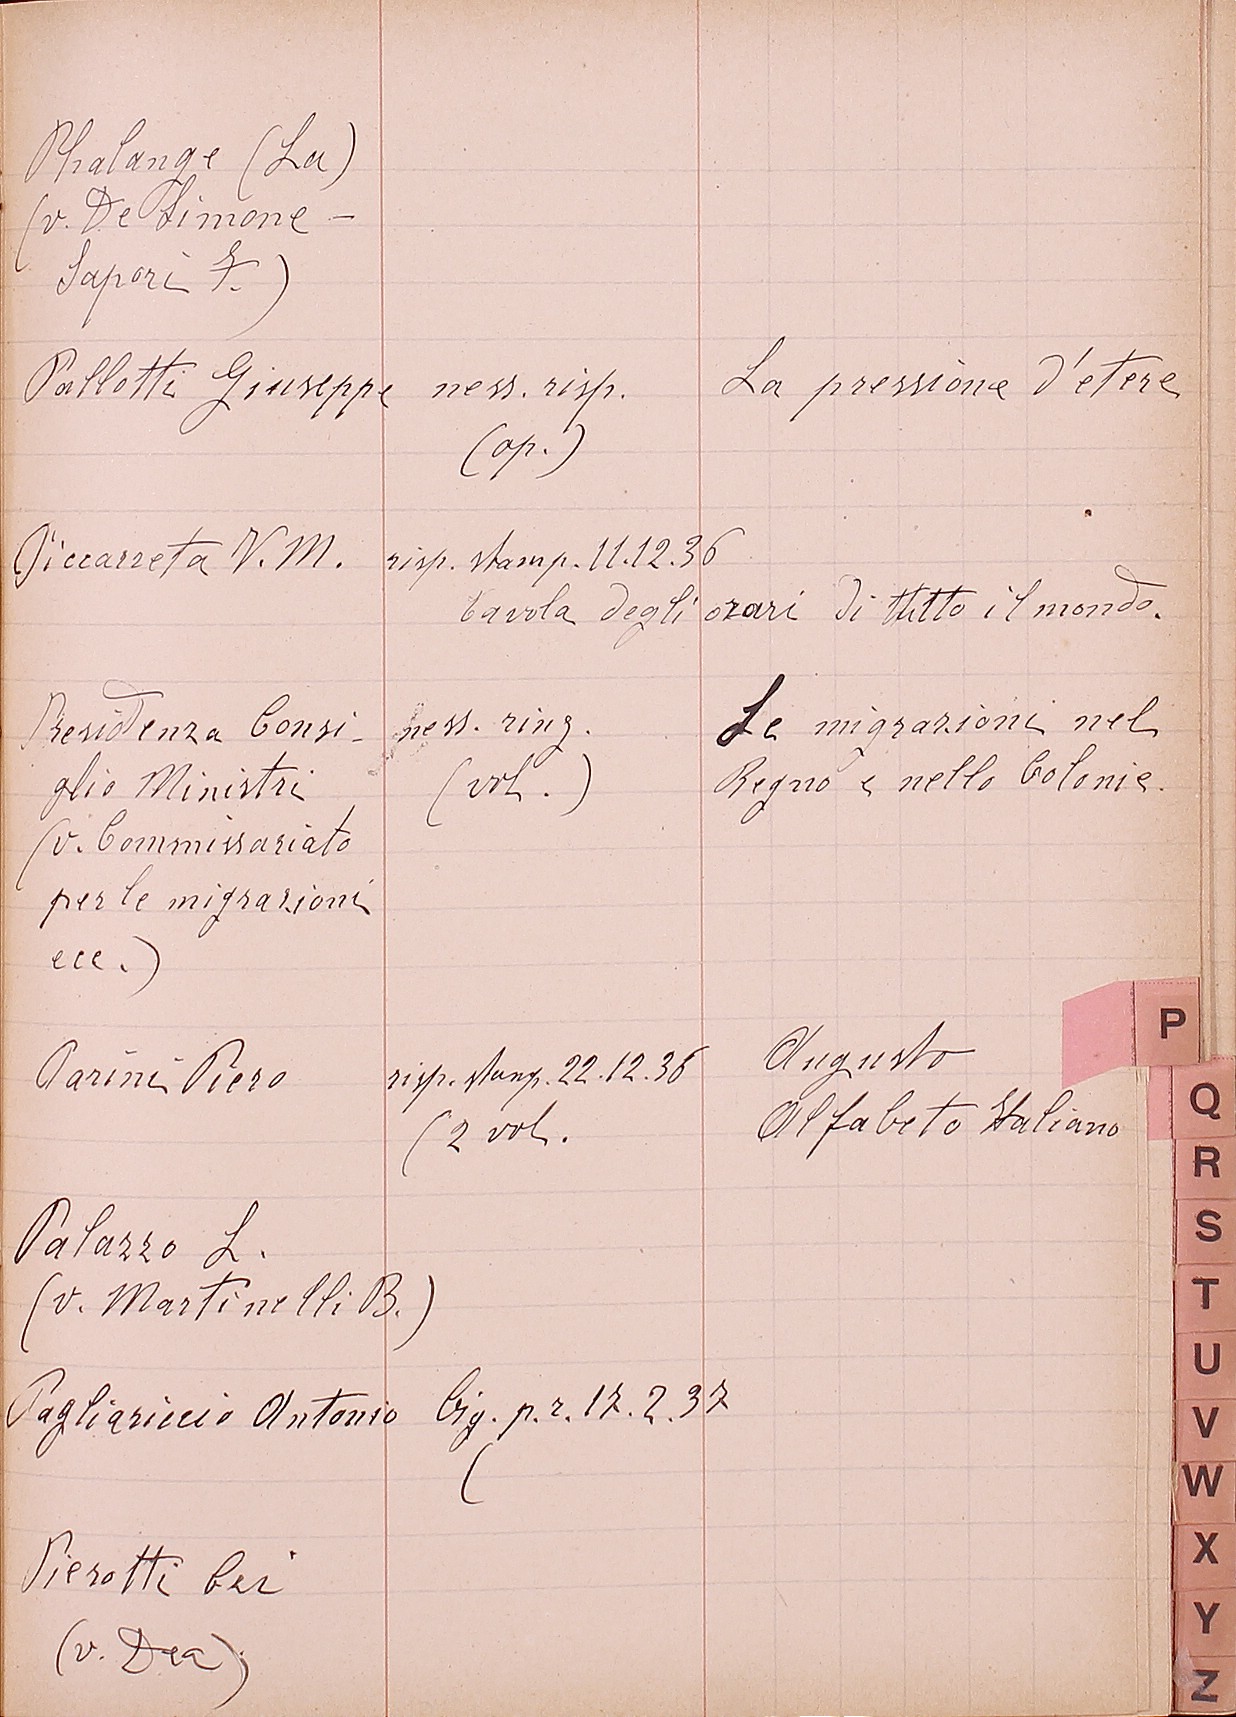 Phalange (La)
(v. De Simone –
Sapori F.)
Pallotti Giuseppe ness. risp. La pressione d'etere
(op.)
Piccarreta V. M. risp. stamp. 11.12.36
tavola degli orari di tutto il mondo.
Presidenza Consi- ness. ring. Le migrazioni nel
glio Ministri (vol.) Regno e nelle Colonie.
(v. Commissariato
per le migrazioni
ecc.)
Parini Piero risp. stamp. 22.12.36 Augusto
(2 vol. Alfabeto Italiano
Palazzo L.
(v. Martinelli B.)
Pagliariccio Antonio Big. p. r. 17.2.37
(
Pierotti
(v. Dea)
P
Q
R
S
T
U
V
W
X
Y
Z